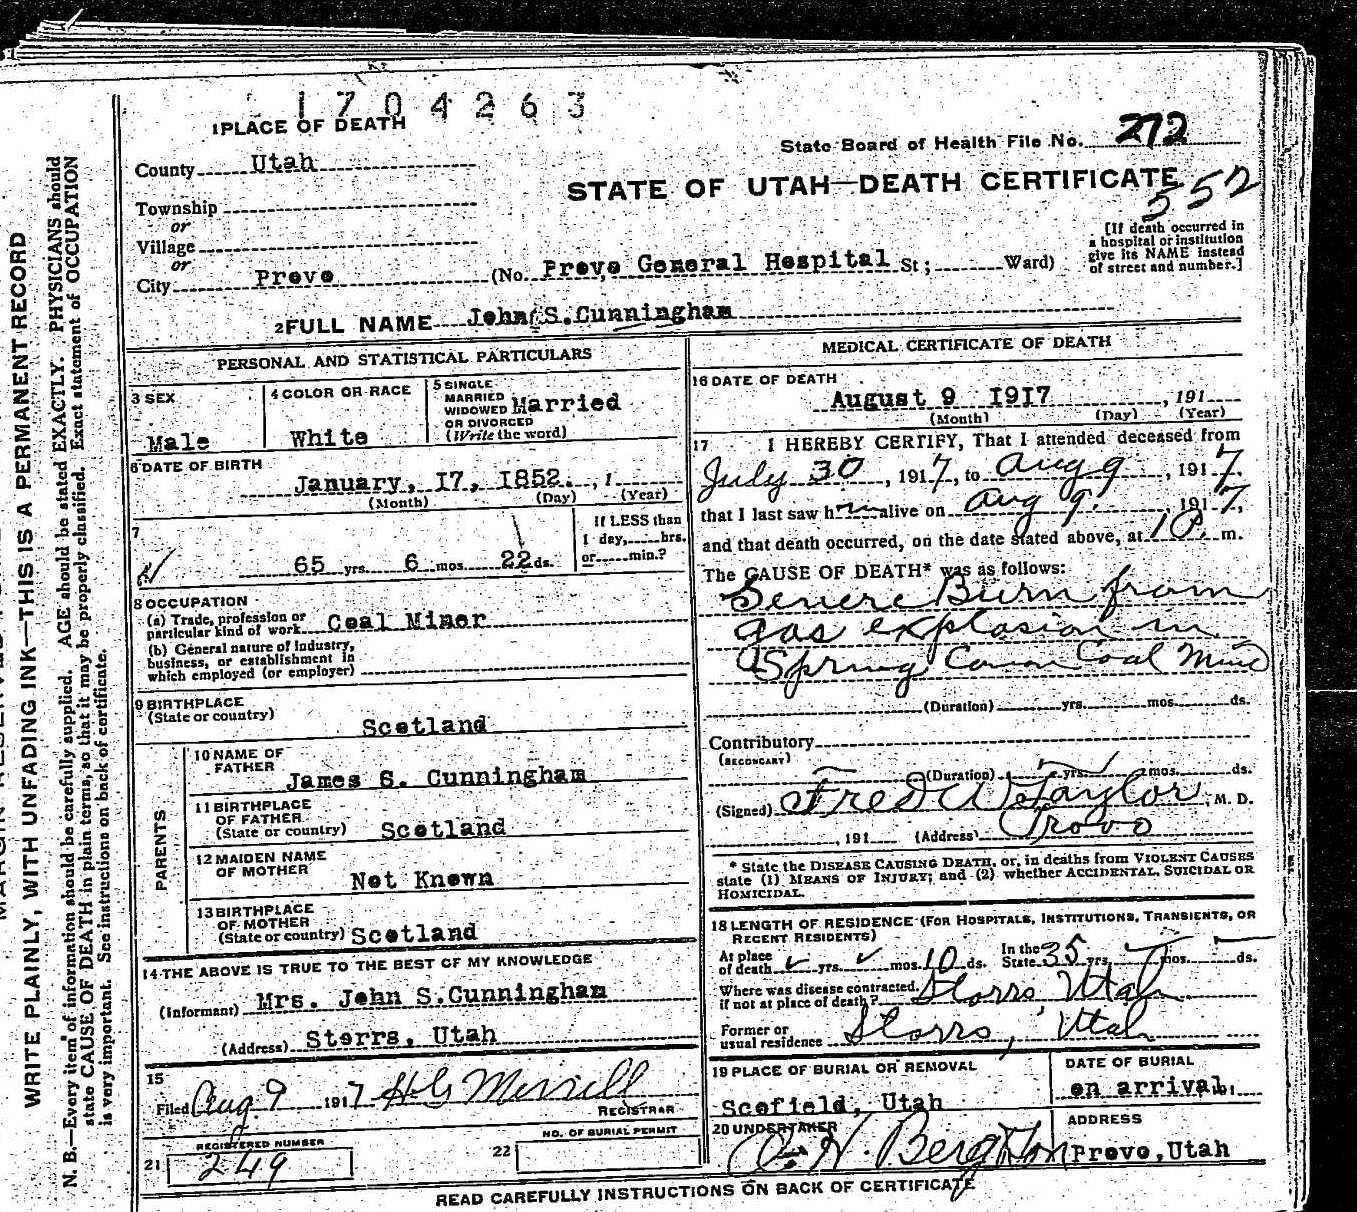 1704263
1 PLACE OF DEATH
State Board of Health File No. 272
County Utah
STATE OF UTAH—DEATH CERTIFICATE
557
Township
or
Village
or
City Provo (No. Provo General Hospital St; Ward)
[If death occurred in
a hospital or institution
give its NAME instead
of street and number.]
2 FULL NAME John S. Cunningham
PERSONAL AND STATISTICAL PARTICULARS
3 SEX
Male
4 COLOR OR RACE
White
5 SINGLE
MARRIED
WIDOWED
OR DIVORCED
(Write the word)
Married
6 DATE OF BIRTH
January, I7, I852. , 1
(Month) (Day) (Year)
7
65 yrs. 6 mos. 22 ds.
If LESS than
1 day, hrs.
or min.?
8 OCCUPATION
(a) Trade, profession or
particular kind of work Coal Miner
(b) General nature of industry,
business, or establishment in
which employed (or employer)
9 BIRTHPLACE
(State or country)
Scotland
PARENTS
10 NAME OF
FATHER
James S. Cunningham
11 BIRTHPLACE
OF FATHER
(State or country) Scotland
12 MAIDEN NAME
OF MOTHER
Not Known
13 BIRTHPLACE
OF MOTHER
(State or country) Scotland
14 THE ABOVE IS TRUE TO THE BEST OF MY KNOWLEDGE
(Informant) Mrs. John S.Cunningham
(Address) Storrs, Utah
15
Filed Aug. 9 1917 H G Merrill
REGISTRAR
REGISTERED NUMBER
21 249
NO. OF BURIAL PERMIT
22
MEDICAL CERTIFICATE OF DEATH
16 DATE OF DEATH
August 9 I9I7 , 191
(Month) (Day) (Year)
17 I HEREBY CERTIFY, That I attended deceased from
July 30, 1917, to Aug 9, 1917.
that I last saw h m alive on Aug 9. 1917,
and that death occurred, on the date stated above, at 1 P. m.
The CAUSE OF DEATH* was as follows:
Severe Burn from
gas explosion in
Spring Canon Coal Mine
(Duration) yrs. mos. ds.
Contributory
(SECONDARY)
(Duration) yrs. mos. ds.
(Signed) Fred W Taylor, M. D.
, 191 (Address) Provo
* State the DISEASE CAUSING DEATH, or, in deaths from VIOLENT CAUSES
state (1) MEANS OF INJURY; and (2) whether ACCIDENTAL, SUICIDAL OR
HOMICIDAL.
18 LENGTH OF RESIDENCE (FOR HOSPITALS, INSTITUTIONS, TRANSIENTS, OR
RECENT RESIDENTS)
At place
of death yrs. mos. 10 ds.
In the
State 35 yrs. mos. ds.
Where was disease contracted,
if not at place of death? Storrs Utah
Former or
usual residence Storrs, Utah
19 PLACE OF BURIAL OR REMOVAL
Scofield, Utah
DATE OF BURIAL
on arrival, 191
20 UNDERTAKER
ADDRESS
Provo,Utah
READ CAREFULLY INSTRUCTIONS ON BACK OF CERTIFICATE
WRITE PLAINLY, WITH UNFADING INK—THIS IS A PERMANENT RECORD
N. B.—Every item of information should be carefully supplied. AGE should be stated EXACTLY. PHYSICIANS should
state CAUSE OF DEATH in plain terms, so that it may be properly classified. Exact statement of OCCUPATION
is very important. See instructions on back of certificate.